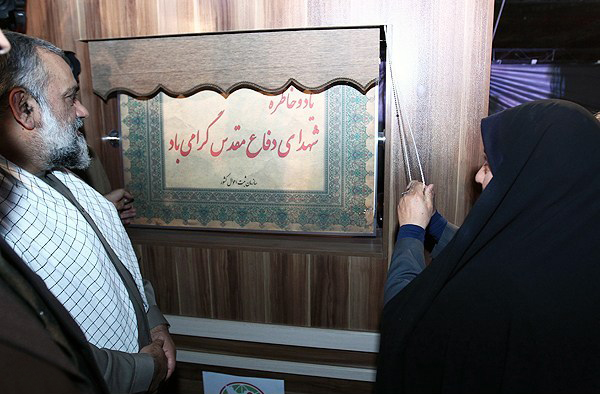 یاد و خاطره
شهدای دفاع مقدس گرامی باد
سازمان ثبت احوال کشور